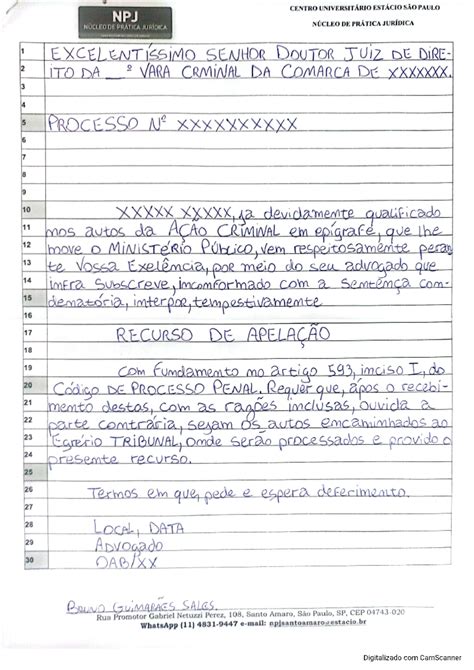 NPJ
NÚCLEO DE PRÁTICA JURÍDICA
CENTRO UNIVERSITÁRIO ESTÁCIO SÃO PAULO
NÚCLEO DE PRÁTICA JURÍDICA
1 EXCELENTÍSSIMO SENHOR DOUTOR JUIZ DE DIRE-
2 ITO DA __ª VARA CRMINAL DA COMARCA DE XXXXXXX.
3
4
5 PROCESSO Nº XXXXXXXXXX
6
7
8
9
10 XXXXX XXXXX, ja devidamente qualificado
11 mos autos da AÇÃO CRIMINAL em epígrafe, que lhe
12 move o MINISTÉRIO PÚBLICO, vem respeitosamente peran-
13 te Vossa Exelência, por meio do seu advogado que
14 infra subscreve, incomformado com a semtemça con-
15 dematória, interpor, tempestivamente
16
17 RECURSO DE APELAÇÃO
18
19 com fundamento mo artigo 593, inciso I, do
20 Código DE PROCESSO PENAL. Requer que, ápos o recebi-
21 mento destas, com as razões inclusas, ouvida a
22 parte comtraria, sejam os autos emcaminhados ao
23 Egrério TRIBUNAL, omde serão processados e provido o
24 presemte recurso.
25
26 Termos em que, pede e espera deferimemto.
27
28 LOCAL, DATA
29 Advogado
30 OAB/XX
Bruno Guimarães Sales.
Rua Promotor Gabriel Netuzzi Perez, 108, Santo Amaro, São Paulo, SP, CEP 04743-020
WhatsApp (11) 4831-9447 e-mail: npjsantoamaro@estacio.br
Digitalizado com CamScanner